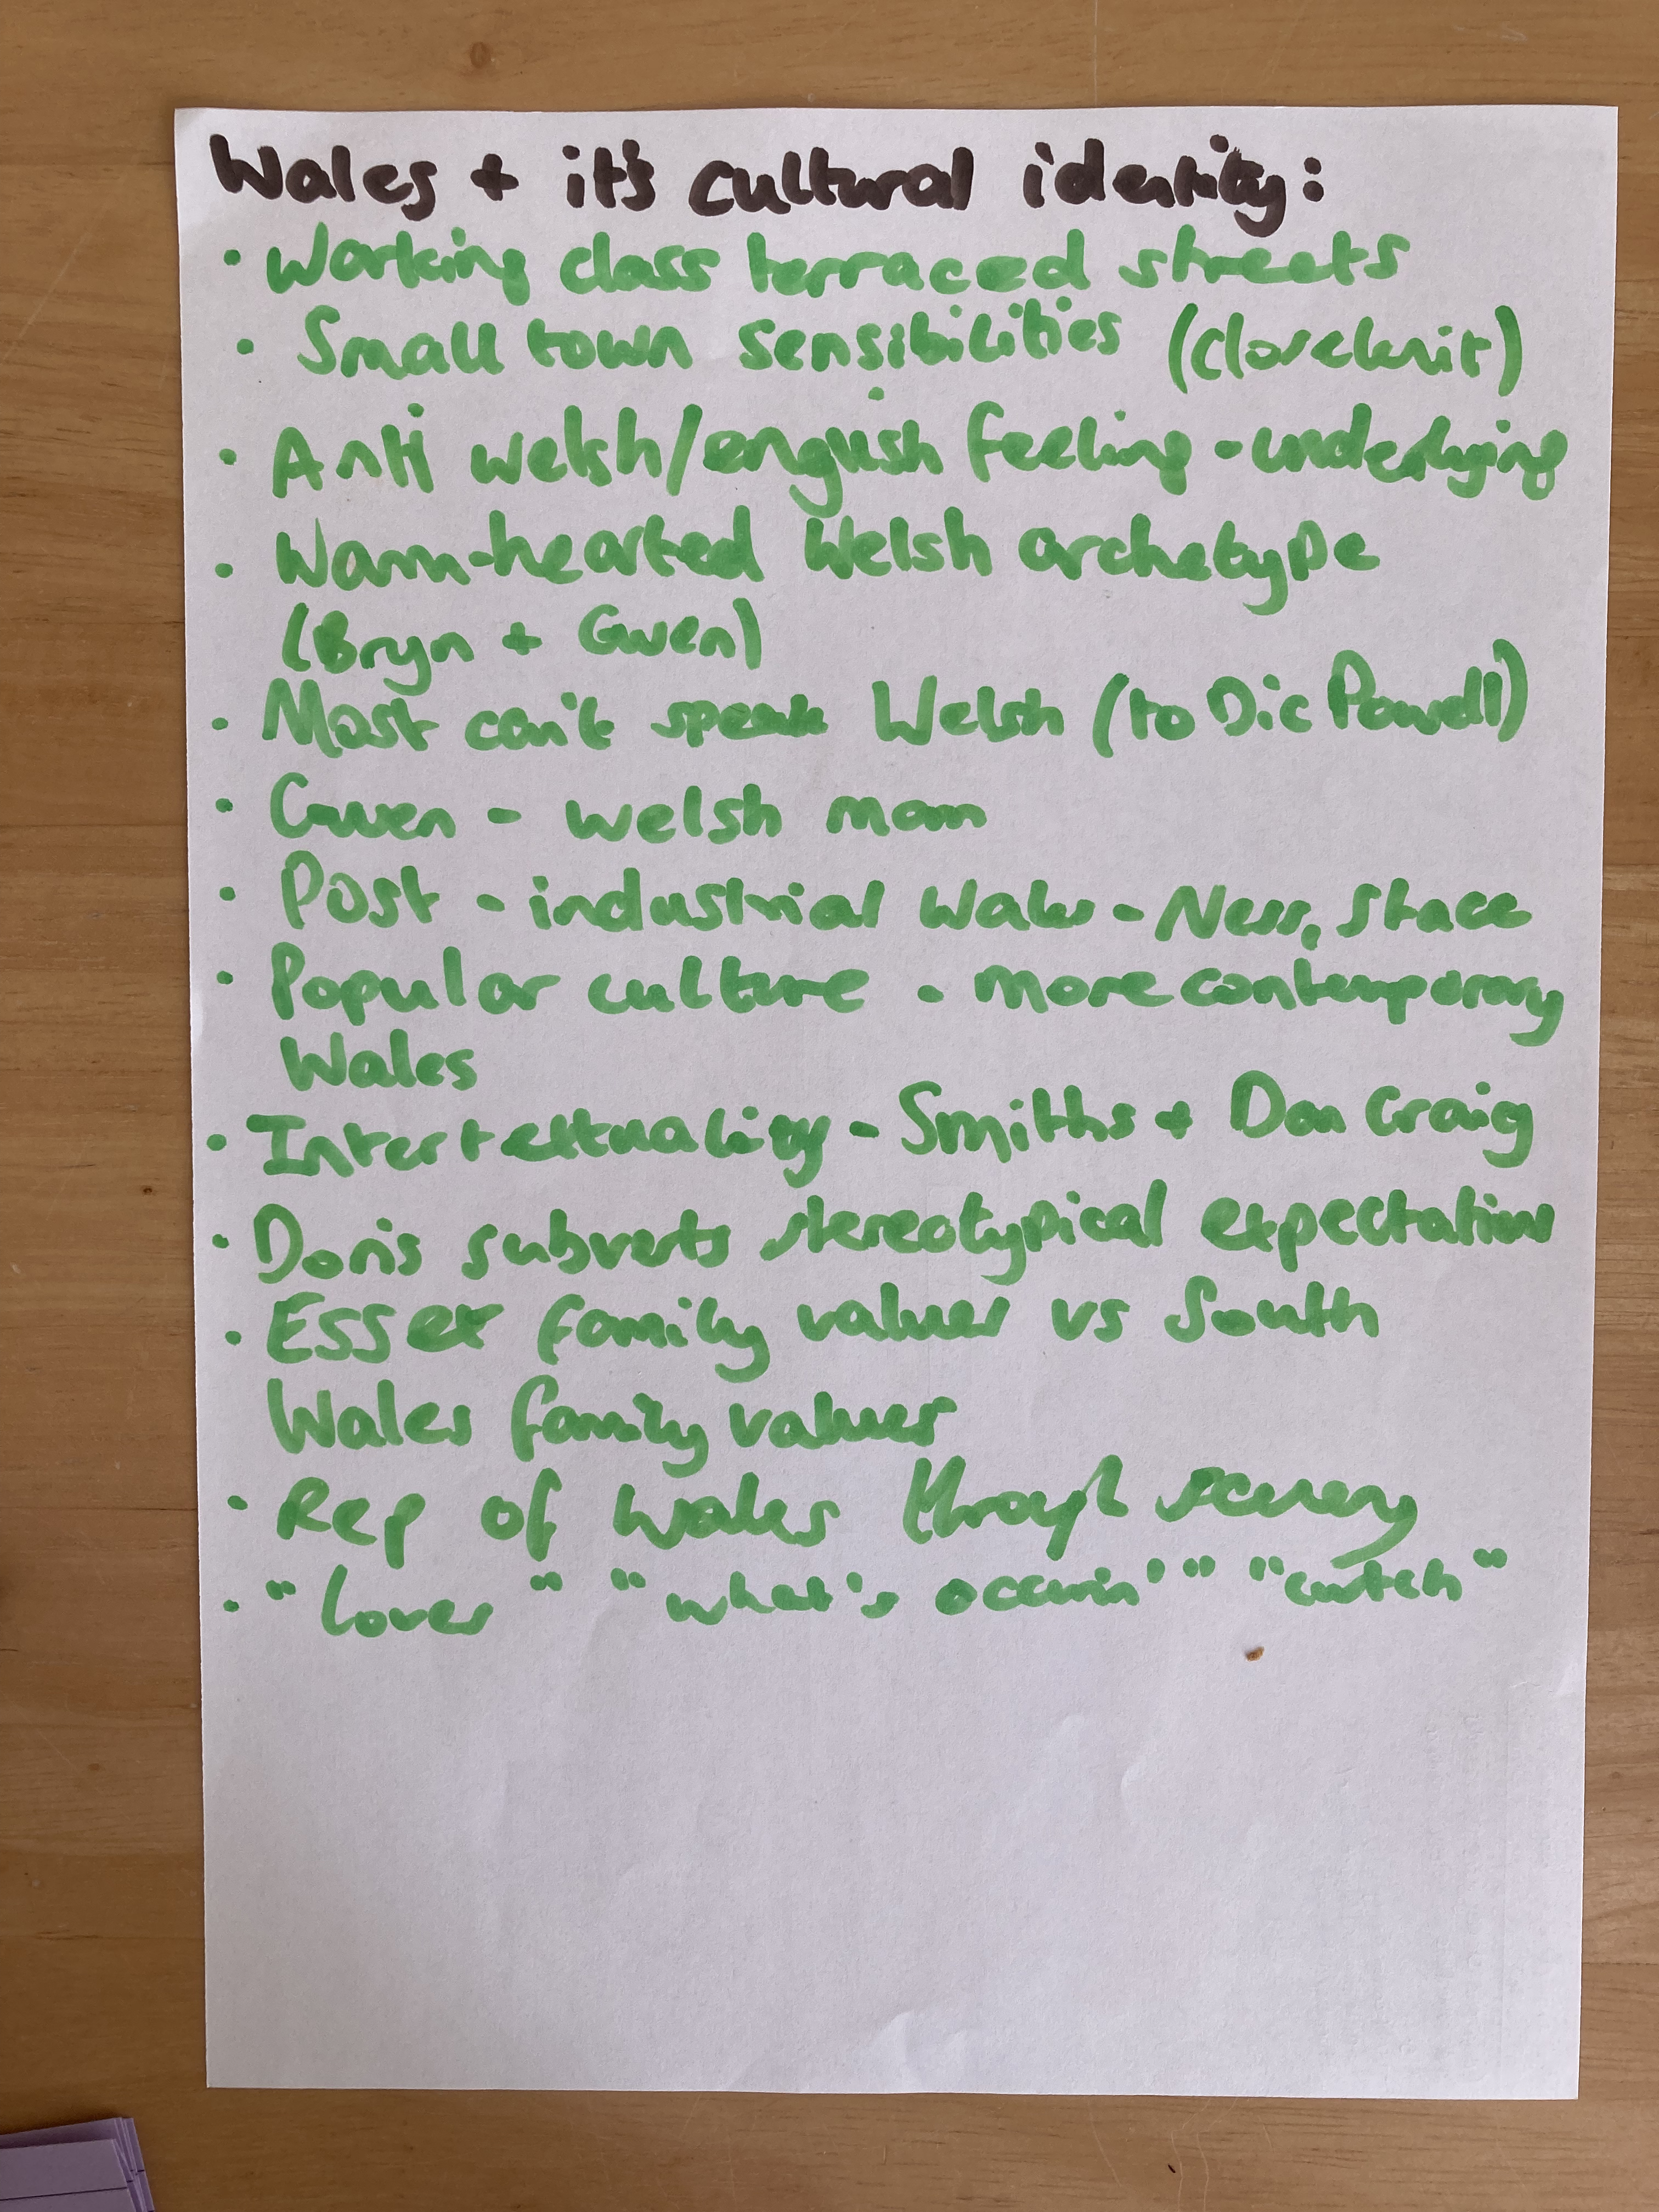 Wales + it's cultural identity:
• Working class terraced streets
• Small town sensibilities (closeknit)
• Anti welsh/english feeling - underlying
• Warm-hearted Welsh archetype
(Bryn + Gwen)
• Most can't speak Welsh (to Dic Powell)
• Gwen - welsh mam
• Post - industrial Wales - Ness, Stace
• Popular culture - more contemporary
Wales
• Intertextuality - Smiths + Dan Craig
• Doris subverts stereotypical expectations
• Essex family values vs South
Wales family values
• Rep of Wales through scenery
• "Lover" "what's occurin'" "cwtch"